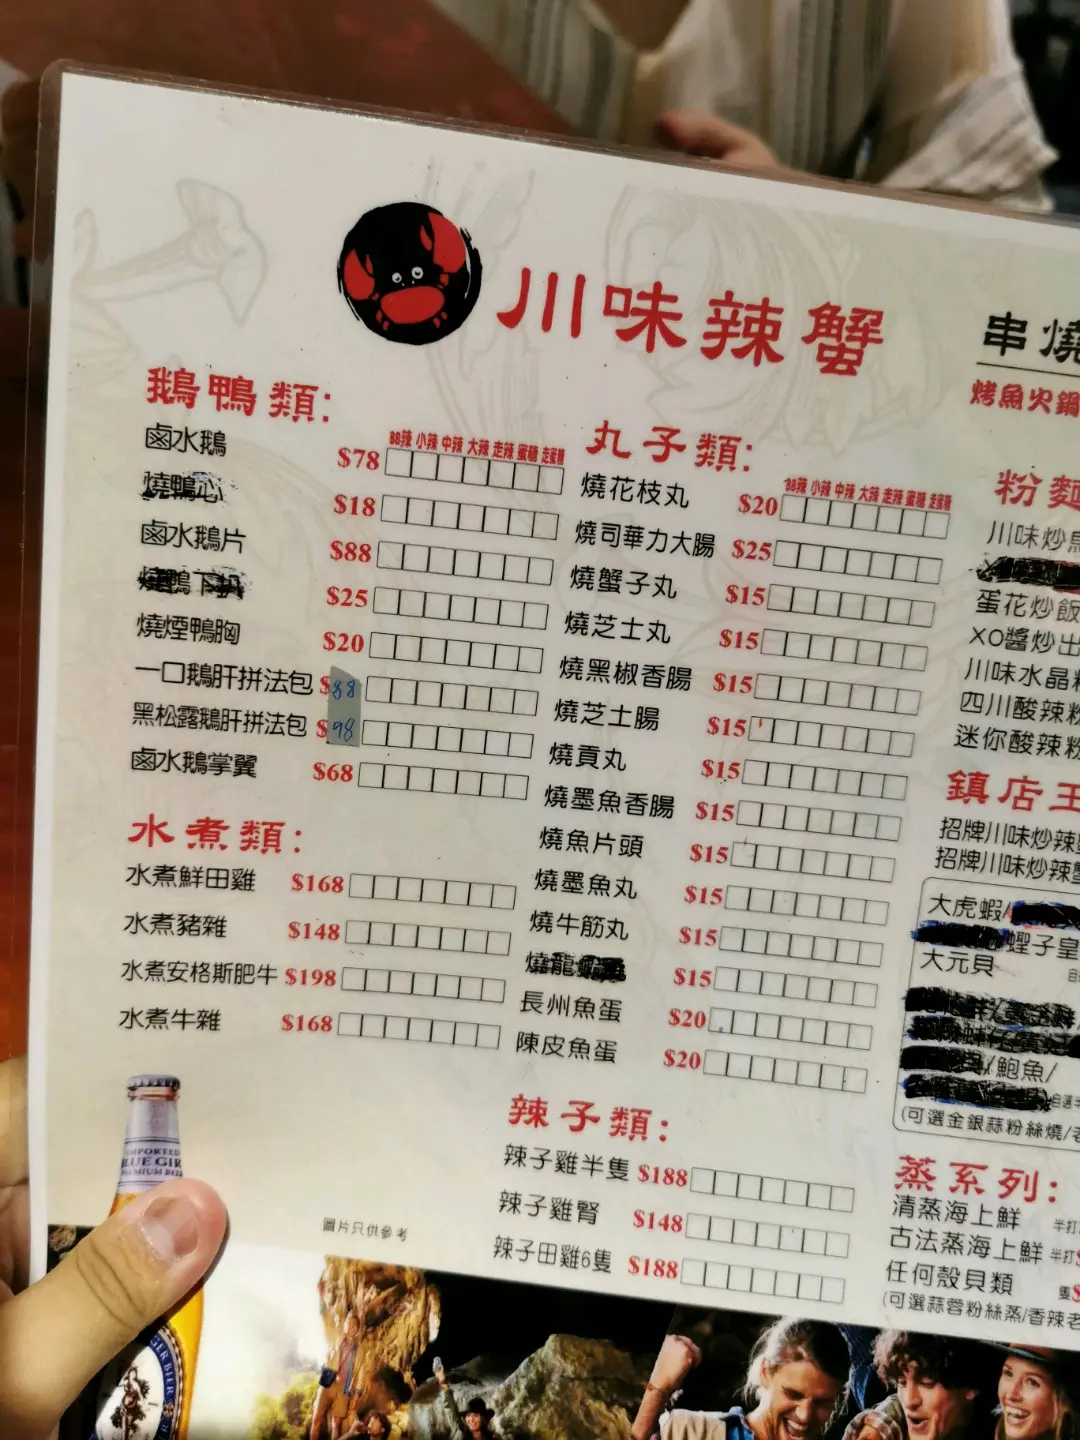 川味辣蟹
鵝鴨類:
BB辣 小辣 中辣 大辣 走辣 蜜糖 走蜜糖
鹵水鵝 $78
燒鴨心 $18
鹵水鵝片 $88
燒鴨下扒 $25
燒煙鴨胸 $20
一口鵝肝拼法包 $88
黑松露鵝肝拼法包 $98
鹵水鵝掌翼 $68
水煮類:
水煮鮮田雞 $168
水煮豬雜 $148
水煮安格斯肥牛 $198
水煮牛雜 $168
IMPORTED
BLUE GIRL
PREMIUM BEER
圖片只供參考
丸子類:
BB辣 小辣 中辣 大辣 走辣 蜜糖 走蜜糖
燒花枝丸 $20
燒司華力大腸 $25
燒蟹子丸 $15
燒芝士丸 $15
燒黑椒香腸 $15
燒芝士腸 $15
燒貢丸 $15
燒墨魚香腸 $15
燒魚片頭 $15
燒墨魚丸 $15
燒牛筋丸 $15
燒龍 $15
長州魚蛋 $20
陳皮魚蛋 $20
辣子類:
辣子雞半隻 $188
辣子雞腎 $148
辣子田雞6隻 $188
串燒
烤魚火鍋
粉麵
川味炒烏
蛋花炒飯
XO醬炒出
川味水晶
四川酸辣粉
迷你酸辣粉
鎮店王
招牌川味炒辣
招牌川味炒辣蟹
大虎蝦/
蟶子皇
大元貝
/鮑魚/
自選半
(可選金銀蒜粉絲燒/老
蒸系列:
清蒸海上鮮 半打
古法蒸海上鮮 半打$
任何殼貝類 隻$
(可選蒜蓉粉絲蒸/香辣老